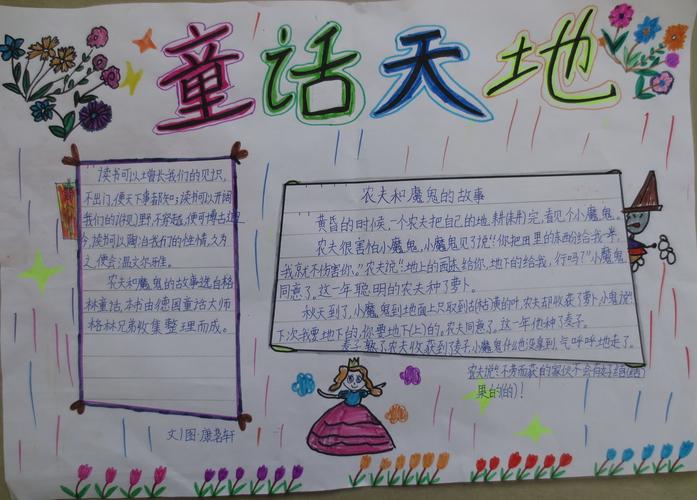 童话天地
读书可以增长我们的见识，
不出门，便天下事都知；读书可以开阔
我们的视野，不穿越，便可博古通
今，读书可以陶冶我们的性情，久而久
之，便会温文尔雅。
农夫和魔鬼的故事选自格
林童话，本书由德国童话大师
格林兄弟收集整理而成。
文/图·康茗轩
农夫和魔鬼的故事
黄昏的时候，一个农夫把自己的地耕作完，看见个小魔鬼。
农夫很害怕小魔鬼，小魔鬼见了说“你把田里的东西给我一半，
我就不伤害你。”农夫说“地上的给你，地下的给我，行吗？”小魔鬼
同意了。这一年聪明的农夫种了萝卜。
秋天到了，小魔鬼到地面上只取到枯黄的叶，农夫却收获了萝卜，小鬼说“
下次我要地下的，你要地上的。农夫同意了。这一年他种了麦子。
麦子熟了农夫收获到了麦子，小魔鬼什么也没拿到，气呼呼地走了。
农夫说“不劳而获的家伙不会有好结
果的！